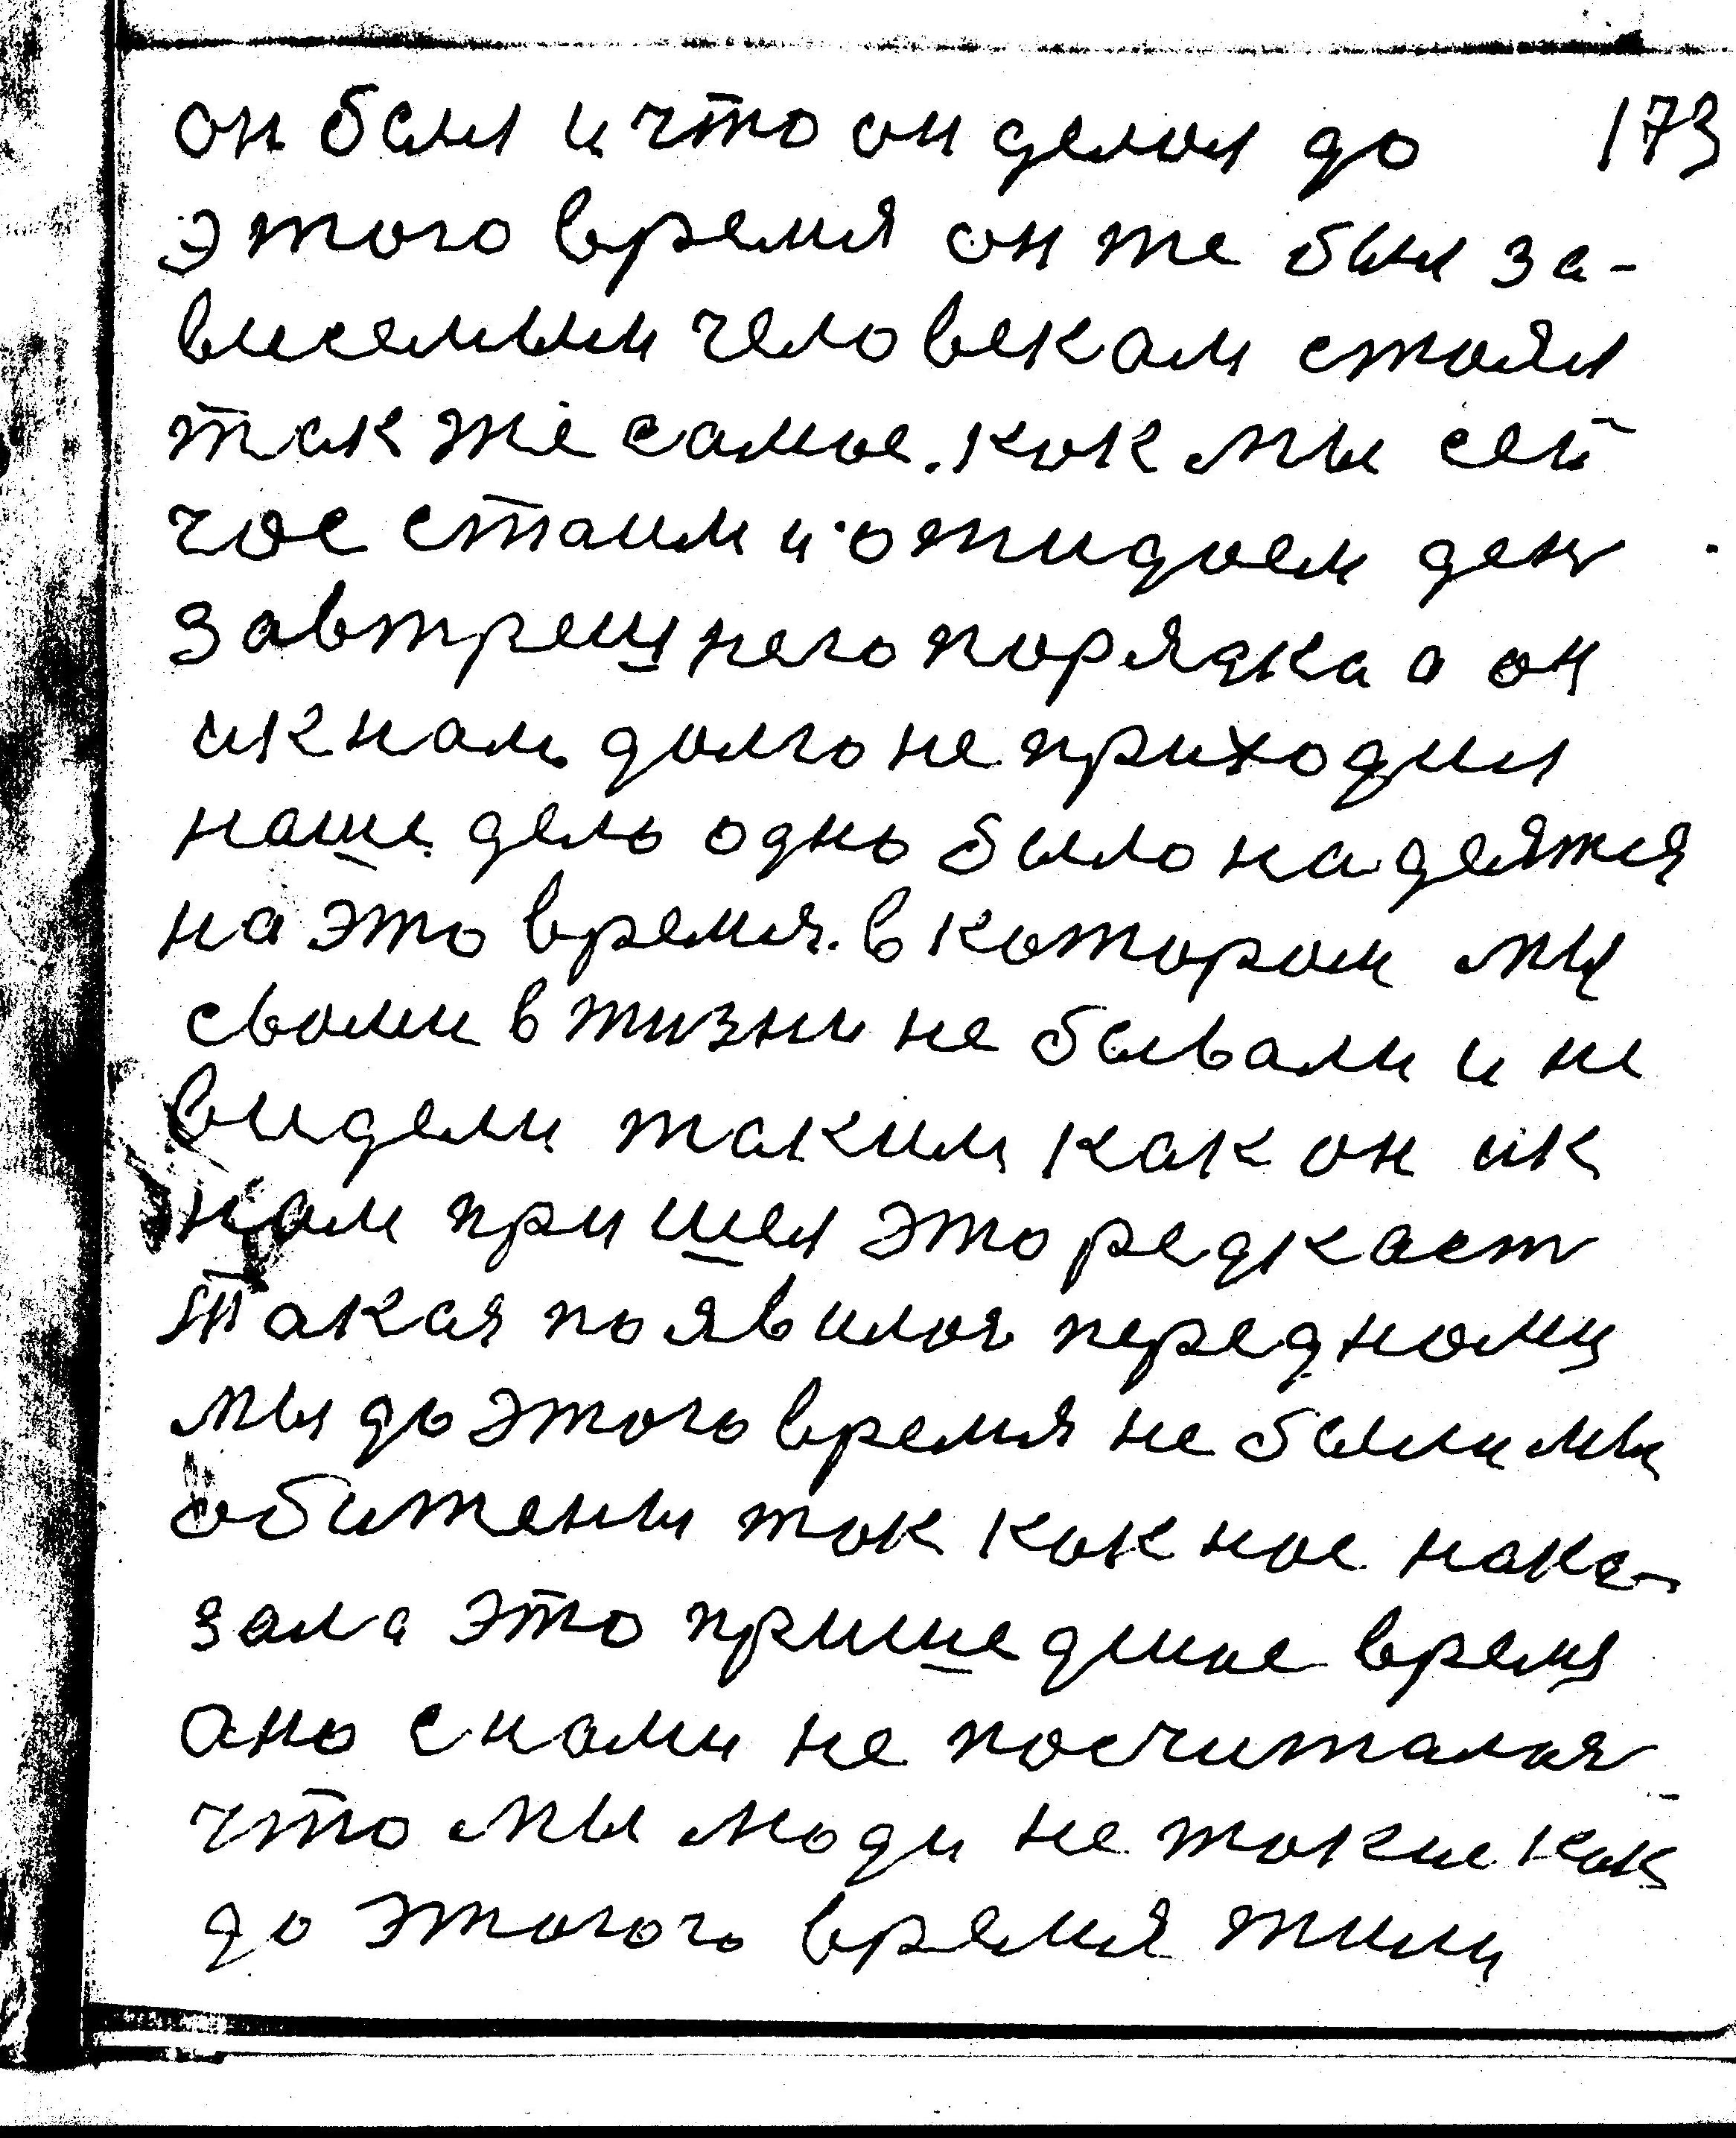 он был и что он делал до 173
этого время он же был за-
висемым человекам стоял
так же самое. как мы сей
час стаим и ожидаем ден
завтрешнего порядка а он
ик нам долго не приходил
наше дело одно было надеятся
на это время. в котором мы
сваими в жизни не бывали и не
видели таким как он ик
нам пришел это редкаст
такая появилас перед нами
мы до этого время не были мы
обижены так как нас нака-
зала это пришедшее время
ано с нами не посчиталася
что мы люди не такие как
до этогого время жили